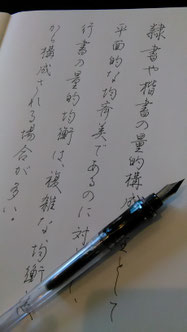 隷書や楷書の量的構成 として
平面的な均斉美であるのに対
行書の量的均衡は、複雑な均衡
から構成される場合が多い。